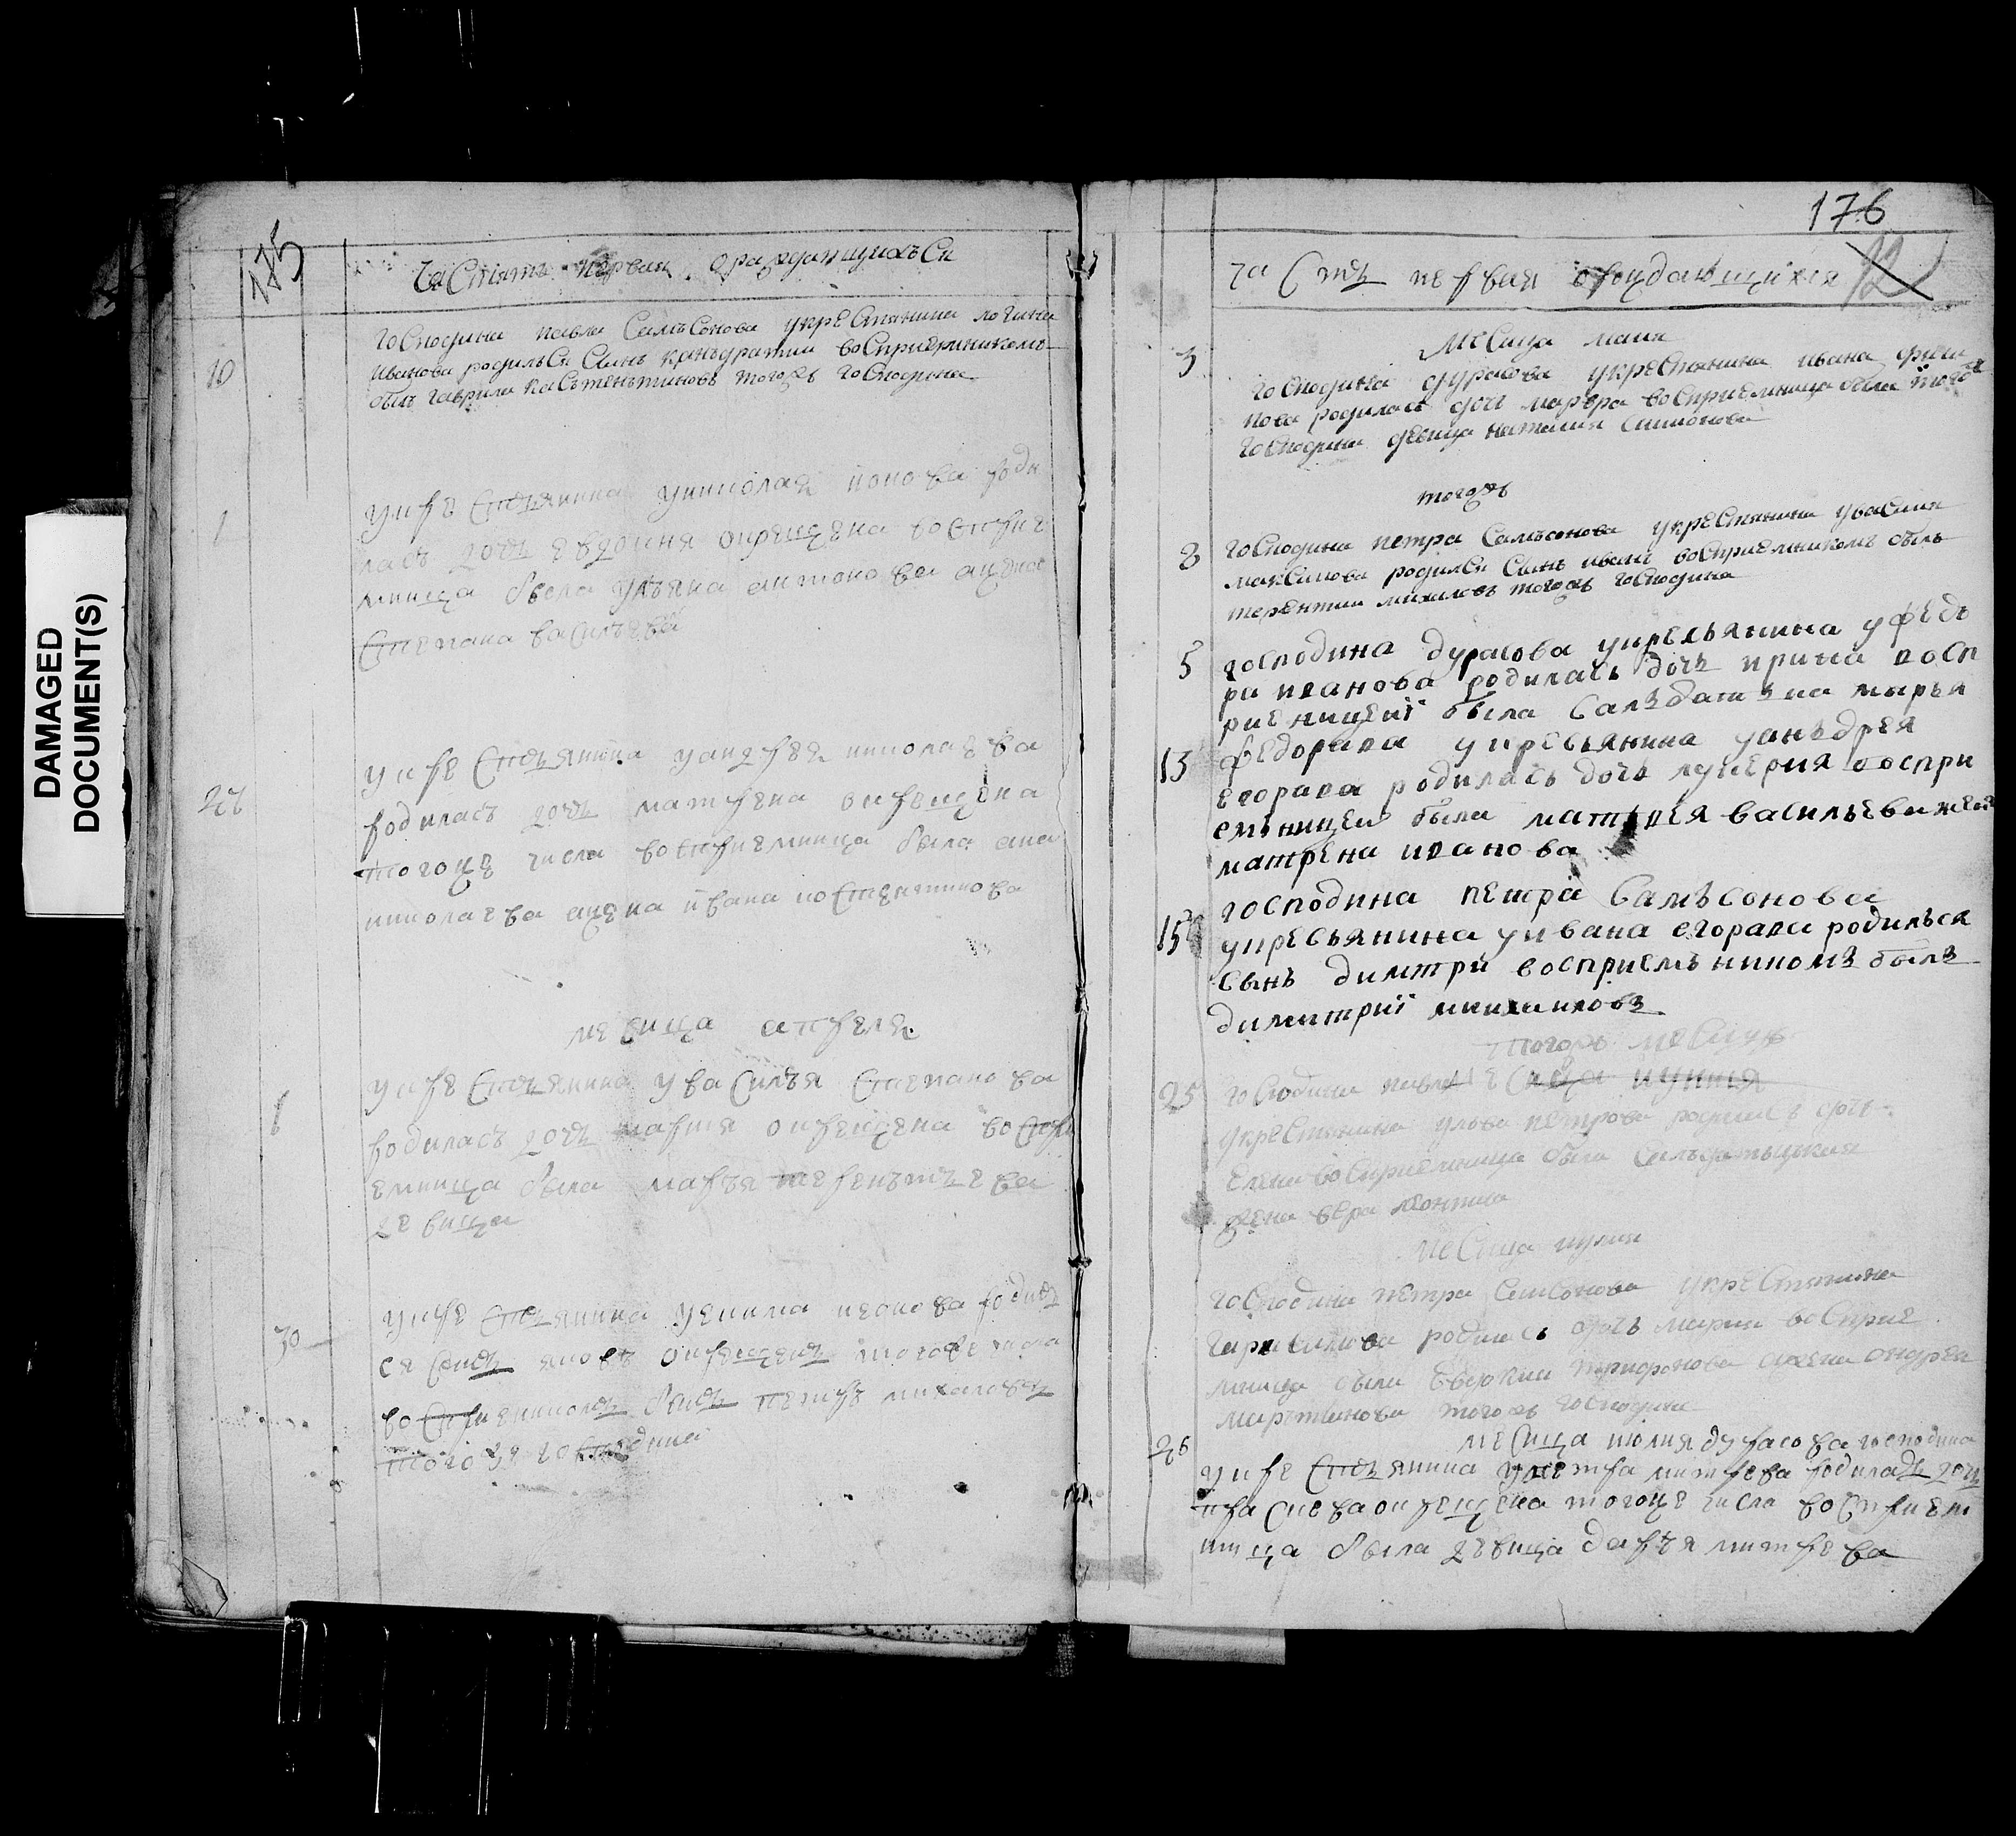 DAMAGED
DOCUMENT(S)
175
Частять первая ораждающихъся
10
Господина павла Самъсонова укрестянина логина
иванова родилься Сынъ кандратии восприемникомъ
былъ гаврила касътенътиновъ тогожъ Господина
укрестьянина униколая
ласъ дочь евдокия окрещена восприе
мница была ульяна антонова ажена
Степана васильева
укрестьянина уандрея николаева
родиласъ дочь матрена окрещена
тогоже числа восприемница была ана
николаева ажена ивана костентинова
месица апреля
укрестьянина увасилъя Степанова
родиласъ дочь мария окрещена воспри
емница была марья терентьева
девица
30
укрестьянина родил
ся сынъ яковъ окрещенъ тогоже числа
восприемникомъ былъ петръ михаловъ
тогоже господина
176
12
часть первая ораждающихся
Месица маия
3
Господина дурасова укрестянина ивана фили
пова родилась дочь марѳра восприемница была тогожъ
Господина девица наталия Симонова
тогожъ
3
Господина петра Самъсонова укрестянина увасиля
максимова родился Сынъ восприемникомъ былъ
терентии михаловъ тогожъ господина
5
господина дурасова укресьянина уфедъ
ри иванова родилась дочь ирина восп
риемницеи была Салъдатъка марья
13
федорава укресьянина уанъдрея
егорава родилась дочь лукерия воспри
емъницеи была васильева жена
матрена иванова
15
господина петра Самъсонова
укресьянина уивана егорава родилься
сынъ димтри восприемъникомъ былъ
димитрии михаиловъ
тогожъ месицъ
25
господина павла месица иуния
укрестянина улва петрова родилась дочь
Елена восприемница была Салъдатыцкая
жена вера
месица иулия
Господина петра Самсонова укрестянина
родилась дочь мария восприе
мница была Евдокия трифонова ажена андрея
мартынова тогожъ господина
26
месица июлия дурасова господина
укрестьянина упетра митрева родилась дочь
прасковя окрещена тогоже числа восприем
ница была девица дарья митрева